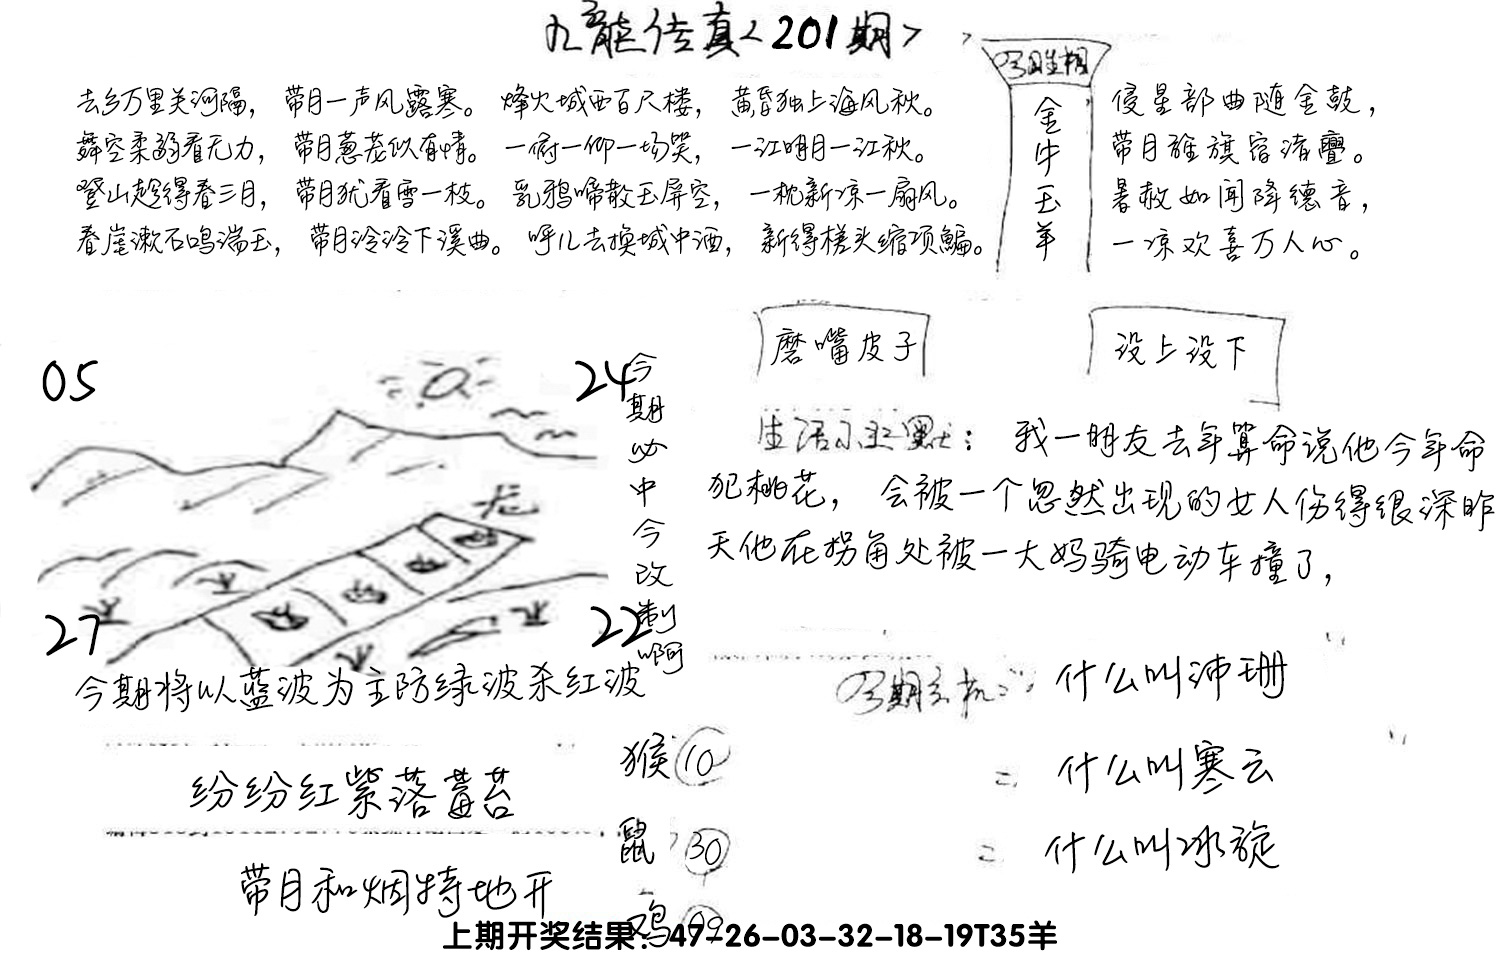 九龍传真<201期>
去乡万里关河隔， 带月一声风露寒。 烽火城西百尺楼， 黄昏独上海风秋。
舞空柔弱看无力， 带月葱茏似有情。 一俯一仰一场笑， 一江明月一江秋。
登山趁得春三月， 带月犹看雪一枝。 乳鸦啼散玉屏空， 一枕新凉一扇风。
春崖漱石鸣湍玉， 带月泠泠下溪曲。 呼儿去换城中酒， 新得槎头缩项鳊。
金牛玉羊
侵星部曲随金鼓，
带月旌旗宿渚亹。
暑赦如闻降德音，
一凉欢喜万人心。
磨嘴皮子
没上没下
05
24
27
22
龙
今期必中今改制啊
今期将以蓝波为主防绿波杀红波
生活小幽默： 我一朋友去年算命说他今年命
犯桃花， 会被一个忽然出现的女人伤得很深昨
天他在拐角处被一大妈骑电动车撞了，
今期玄机： 什么叫沛珊
什么叫寒云
什么叫冰旋
纷纷红紫落莓苔
带月和烟特地开
猴 10
鼠 30
鸡 09
上期开奖结果：47-26-03-32-18-19T35羊